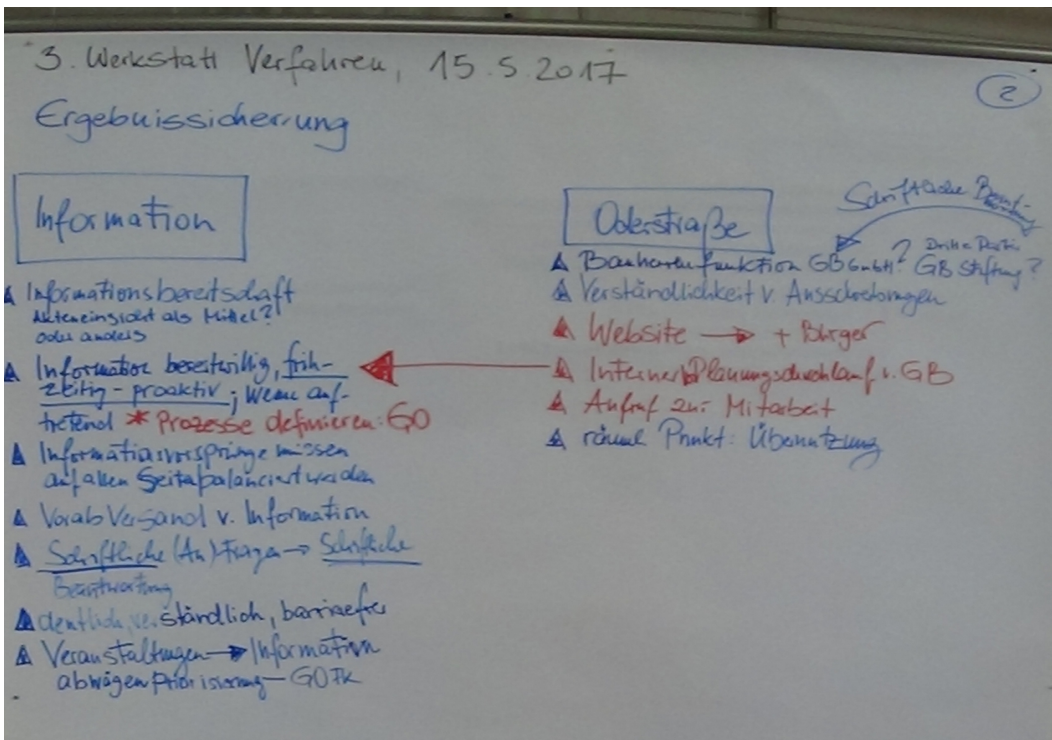 3. Werkstatt Verfahren, 15.5.2017
2
Ergebnissicherung
Information
Informationsbereitschaft
Akteneinsicht als Mittel?
oder anders
Information bereitwillig, früh-
zeitig - proaktiv; wenn auf-
tretend * Prozesse definieren: GO
Informationsvorsprünge müssen
auf allen Seiten balanciert werden
Vorab Versand v. Information
Schriftliche (An)fragen → Schriftliche
Beantwortung
deutlich, verständlich, barrierefrei
Veranstaltungen → Information
abwägen Priorisierung - GO TK
Schriftliche
Oderstraße
Bauherrenfunktion GB GmbH? GB Stiftung?
Dritte Partei
Verständlichkeit v. Ausschreibungen
Website → + Bürger
Interner Planungsdurchlauf v. GB
Aufruf zur Mitarbeit
räuml Punkt: Übernutzung